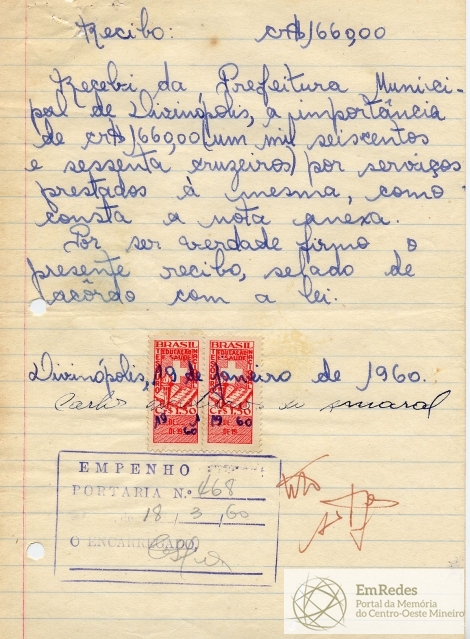 Recibo: cr$1660,00
Recebi da Prefeitura Munici-
pal de Divinópolis, a importância
de cr$1660,00 (um mil seiscentos
e sessenta cruzeiros) por serviços
prestados à mesma, como
consta a nota anexa.
Por ser verdade firmo o
presente recibo, selado de
acôrdo com a lei.
BRASIL BRASIL
EDUCAÇÃO E SAUDE EDUCAÇÃO E SAUDE
Divinópolis, 19 de janeiro de 1960.
Carlos Amaral
CR$1,50 CR$1,50
19 1 19 60
DE
DE 19 60 DE 19
EMPENHO
PORTARIA N.º 468
18, 3, 60
O ENCARREGADO,
EmRedes
Portal da Memória
do Centro-Oeste Mineiro